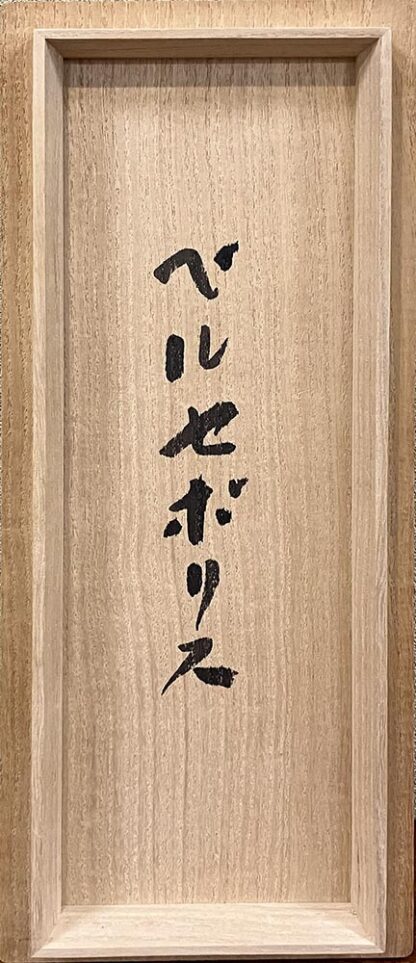 ペルセポリス